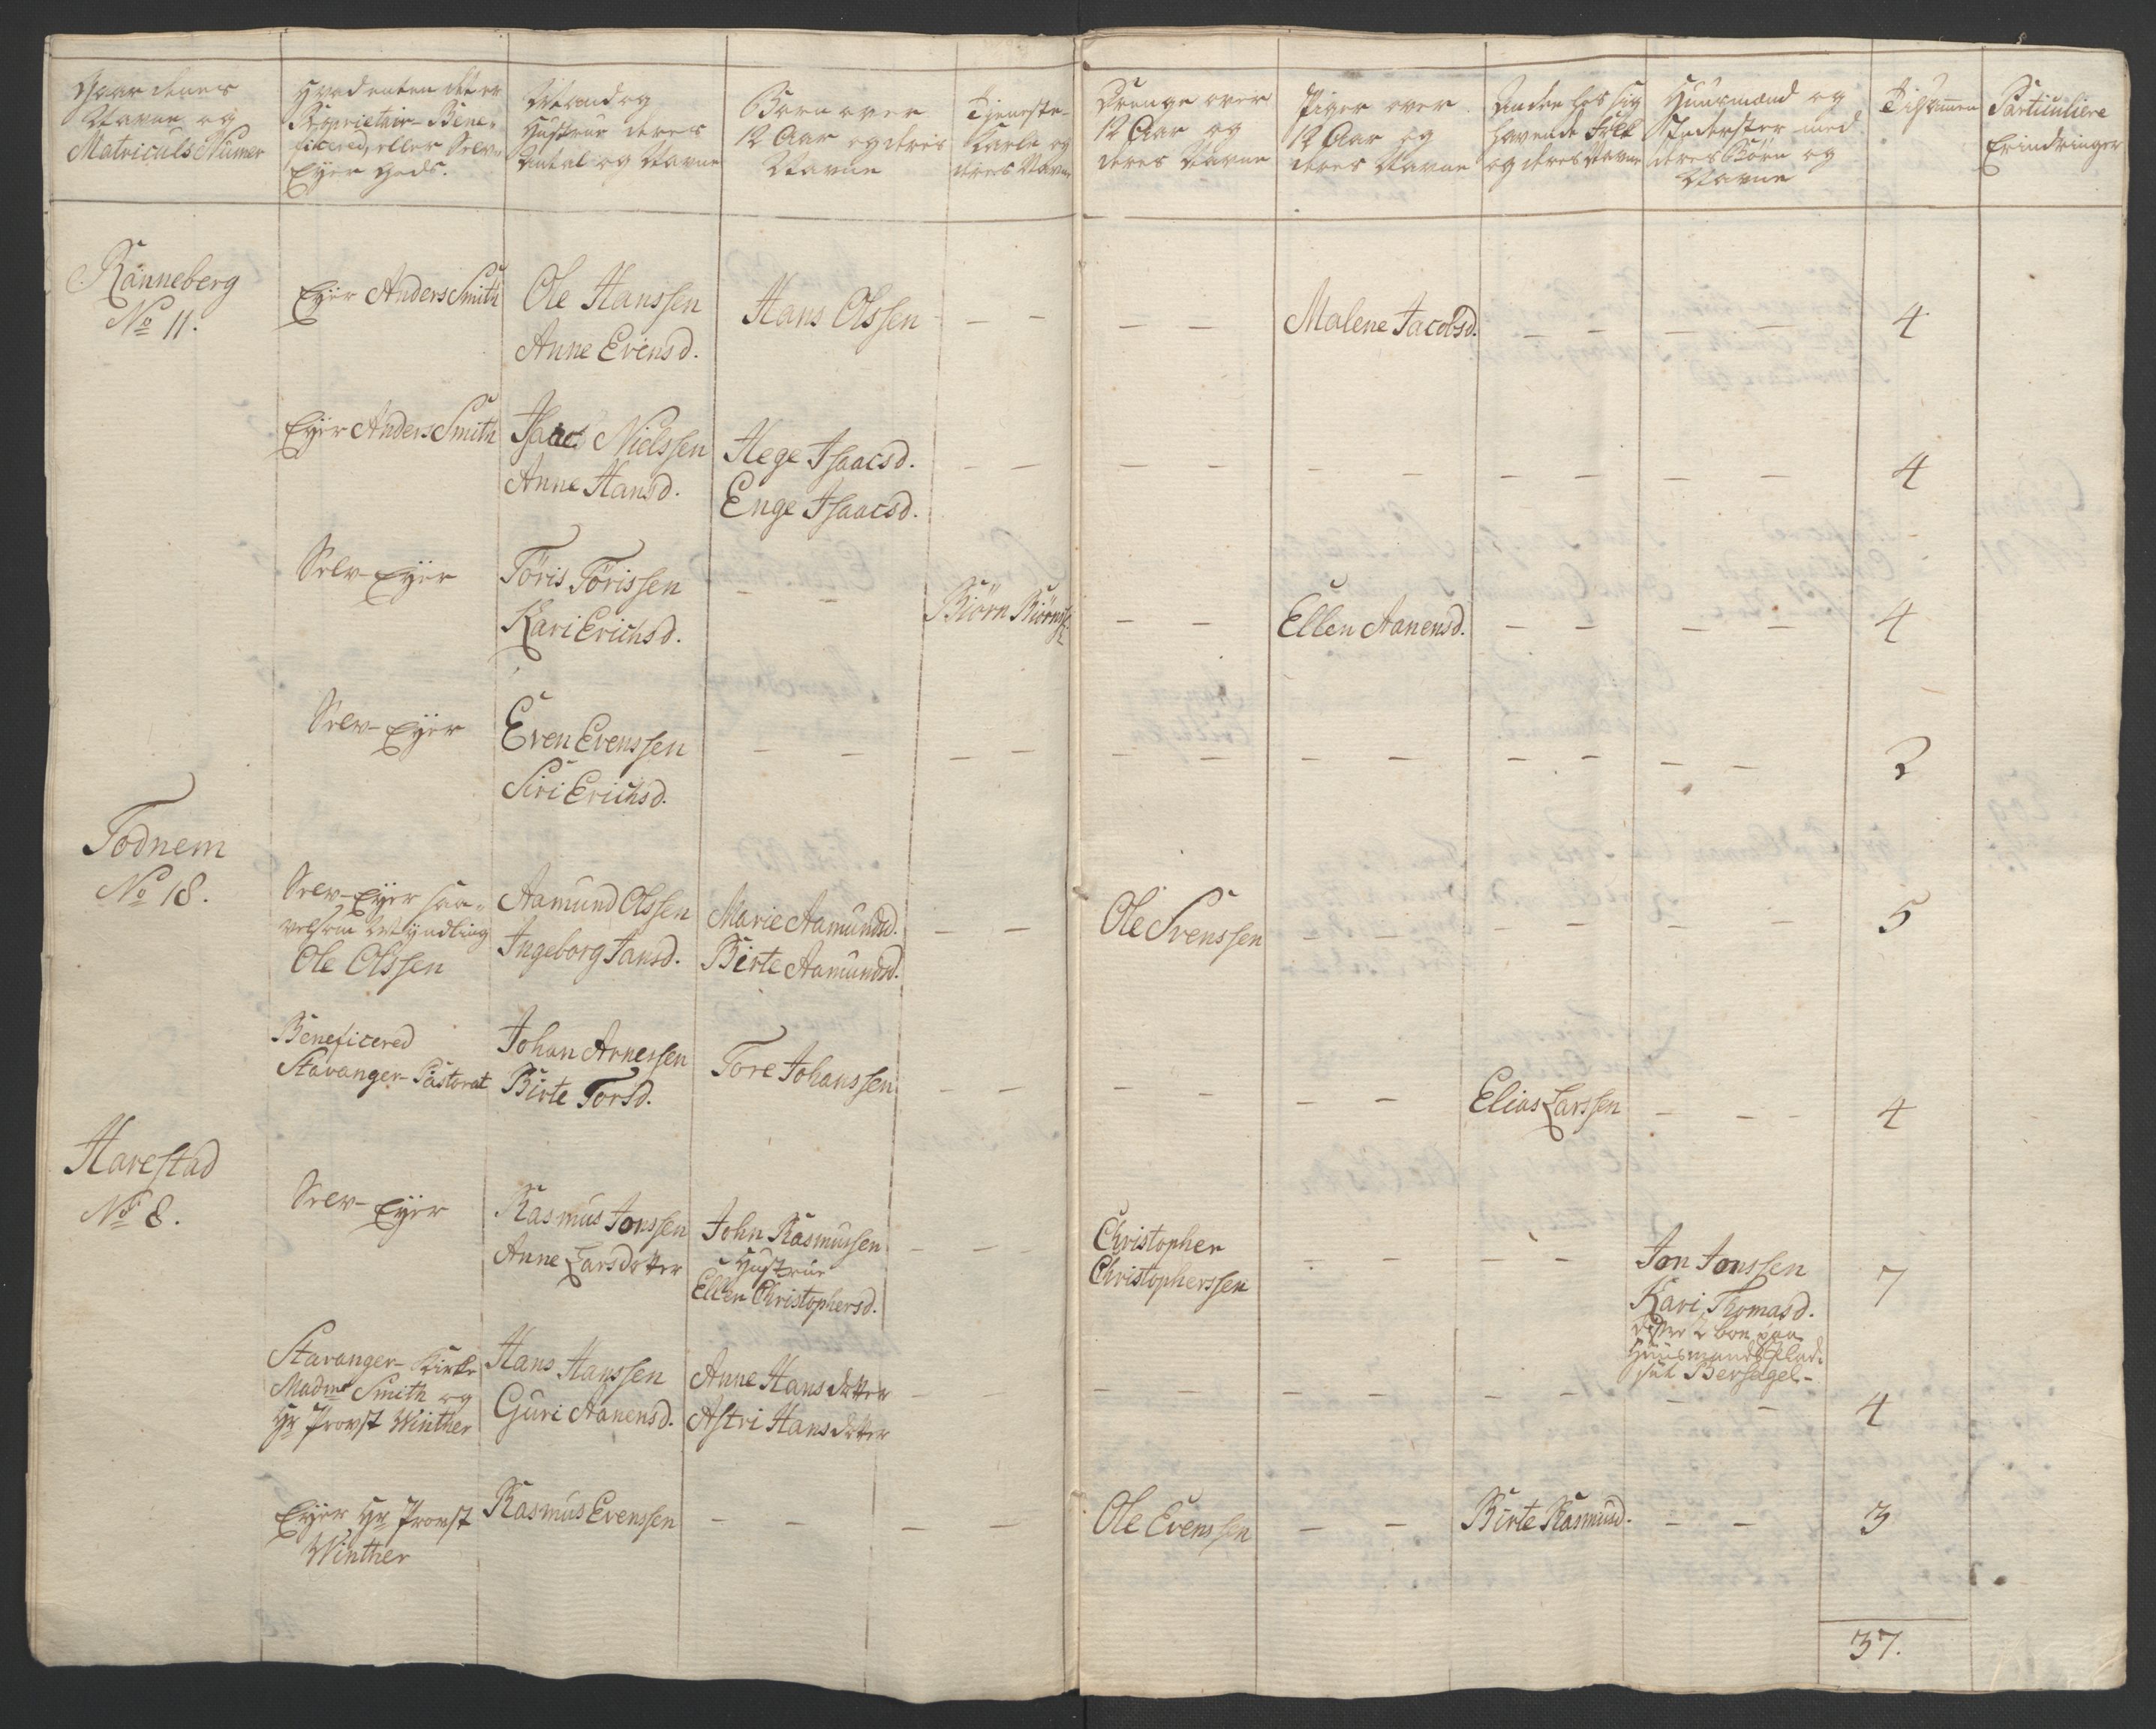 Gaardenes
Navne og
Matriculs Numer
Hvad enten det er
Proprietair- Bene-
ficered, eller Selv-
Eyer Gods.
Mand og
Hustrue deres
Antal og Navne
Børn over
12 Aar og deres
Navne
Tjeneste-
Karle og
deres Navne
Drenge over
12 Aar og
deres Navne
Piger over
12 Aar og
deres Navne
Anden hos sig
havende Folk
og deres Navne
Huusmænd og
Inderster med
deres Børn og
Navne
Tilsammen
Particuliere
Erindringer
Ranneberg
No 11.
Eyer Anders Smith
Ole Hanssen
Anne Evensd.
Hans Olssen
Malene Jacobsd.
4
Eyer Anders Smith
Isaac Nielssen
Anne Hansd.
Hege Isaacsd.
Enge Isaacsd.
4
Selv-Eyer
Töris Törissen
Kari Erichsd.
Biörn Biörns:
Ellen Aanensd.
4
Selv-Eyer
Even Evenssen
Siri Erichsd.
2
Todnem
No 18.
Selv-Eyer saa-
velsom Myndling
Ole Olssen
Aamund Olssen
Ingeborg Jansd.
Marie Aamundsd.
Birte Aamundsd.
Ole Svenssen
5
Beneficered
Stavanger-Pastorat
Johan Arnessen
Birte Torsd.
Tore Johanssen
Elias Larssen
4
Harestad
No 8.
Selv-Eyer
Rasmus Jonssen
Anne Larsdotter
John Rasmussen
Hustrue
Ellen Christophersd.
Christopher
Christopherssen
Jon Jonssen
Kari Thomasd.
disse 2 boe paa
Huusmands Plad-
set Berfagel-
7
Stavanger-Kirke
Madme Smith og
Hr Provst Winther
Hans Hanssen
Guri Aanensd.
Anne Hansdotter
Astri Hansdotter
4
Eyer Hr Provst
Winther
Rasmus Evenssen
Ole Evenssen
Birte Rasmusd.
3
37.